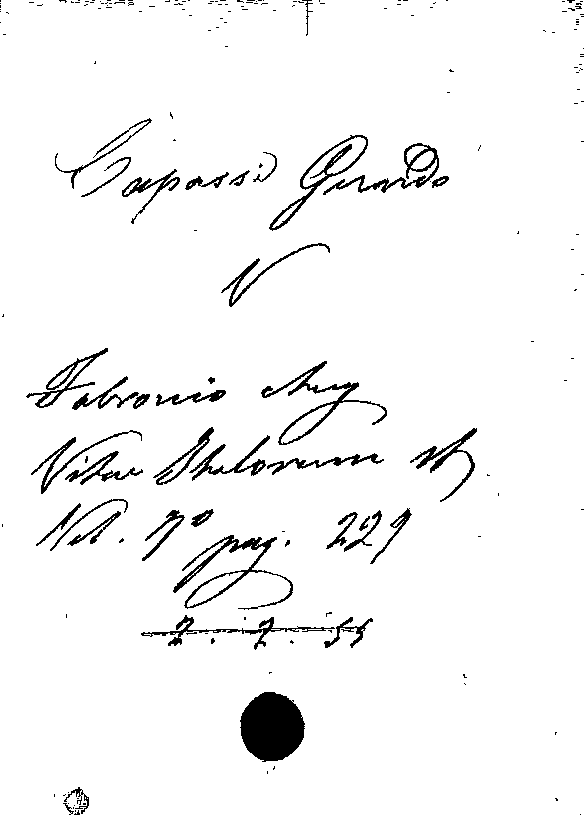 Capassi Gerardo
V
Fabronio Ang
Vitae Italorum etc
Vol. 7º pag. 229
2.7.55